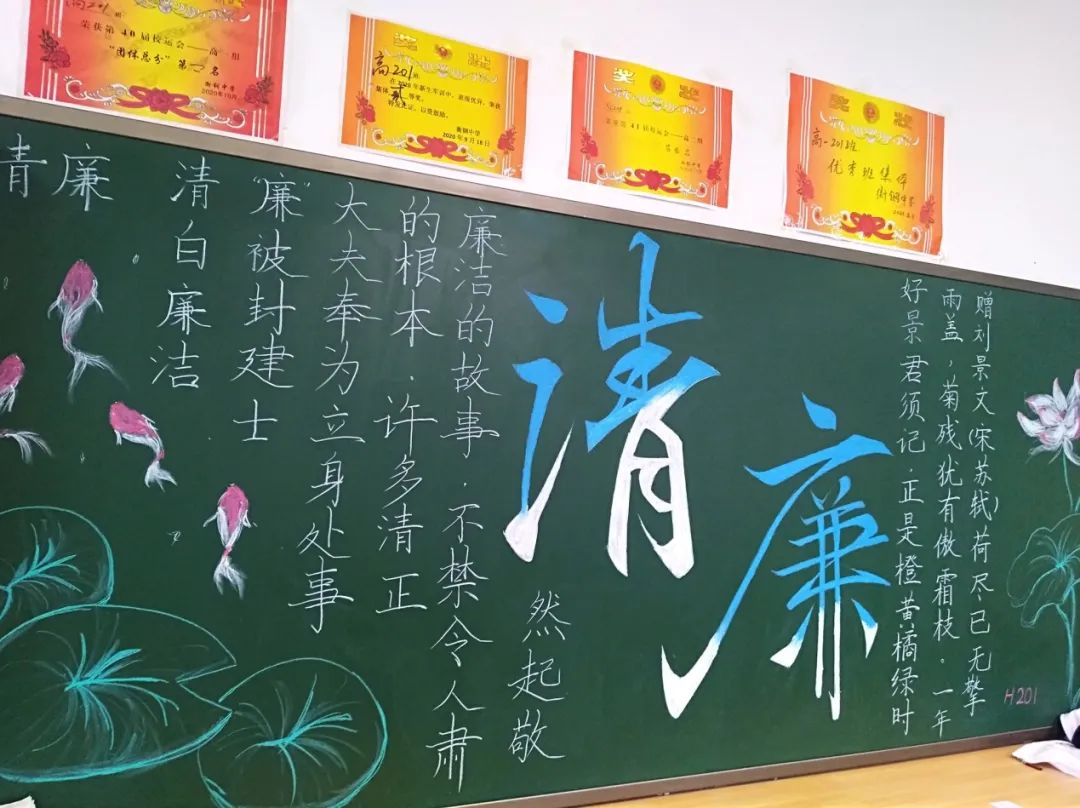 高201班
荣获第40届校运会——高一组
“团体总分”第 名
衡钢中学
2020年10月
奖状
高201班:
在2020年新生军训中,表现优异,荣获
集体贰等奖。
特发此证,以资鼓励。
衡钢中学
2020年9月18日
奖状
荣获第41届校运会——高二组
奖状
高一201班
优秀班集体
衡钢中学
清廉
清白廉洁
“廉”被封建士
大夫奉为立身处事
的根本.许多清正
廉洁的故事.不禁令人肃
然起敬
清廉
赠刘景文(宋苏轼)荷尽已无擎
雨盖,菊残犹有傲霜枝。一年
好景君须记.正是橙黄橘绿时
H201